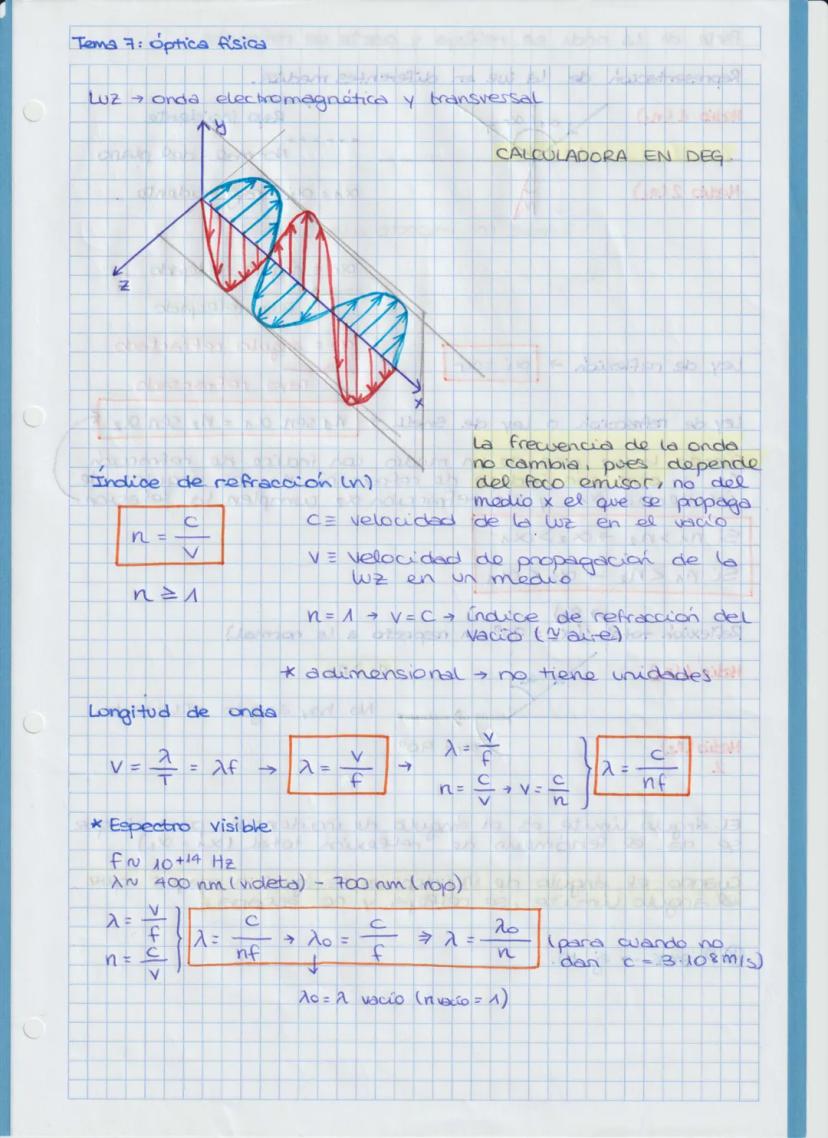 Tema 7: Óptica física
Luz → onda electromagnética y transversal
y
CALCULADORA EN DEG.
z
x
La frecuencia de la onda
no cambia, pues depende
del foco emisor, no del
medio x el que se propaga
Índice de refracción (n)
n = c/v
c ≡ velocidad de la luz en el vacío
v ≡ velocidad de propagación de la
luz en un medio
n ≥ 1
n = 1 → v = c → índice de refracción del
vacío (≃ aire)
* adimensional → no tiene unidades
Longitud de onda
v = λ/T = λf → λ = v/f → λ = v/f
n = c/v → v = c/n } λ = c/nf
* Espectro visible
f ~ 10+14 Hz
λ ~ 400 nm (violeta) - 700 nm (rojo)
λ = v/f
n = c/v } λ = c/nf → λ0 = c/f ⇒ λ = λ0/n (para cuando no
dan c = 3·108 m/s)
↓
λ0 = λ vacío (n vacío = 1)